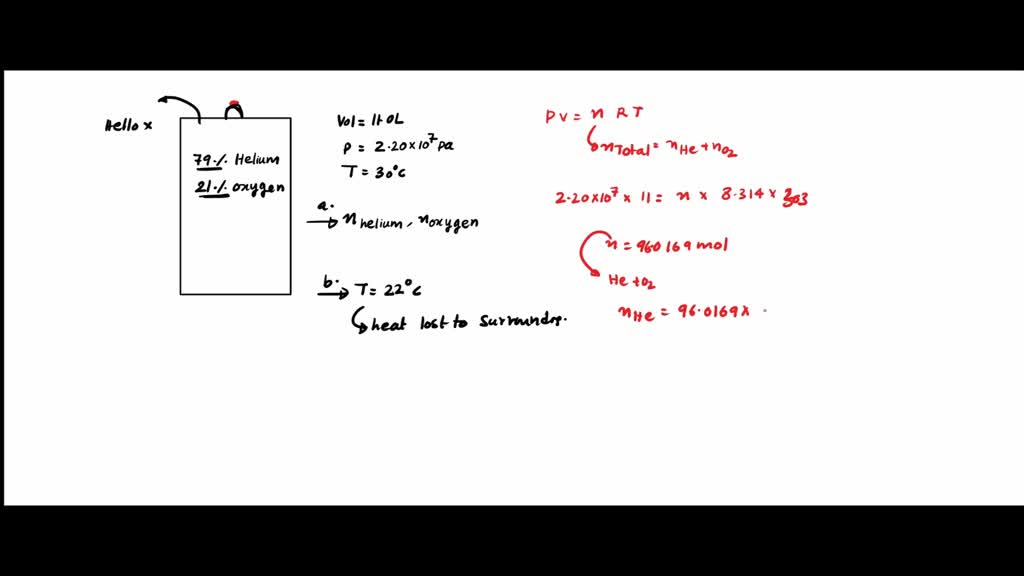 Hello x
79·/. Helium
21·/. oxygen
Vol = 11.0L
P = 2.20×10⁷ pa
T = 30°C
a.
n helium, n oxygen
b.
T = 22°C
heat lost to surroundgs.
PV = n RT
nTotal = nHe + nO2
2.20×10⁷ × 11 = n × 8.314 × 303
n = 960169 mol
He + O2
nHe = 96.0169 ×